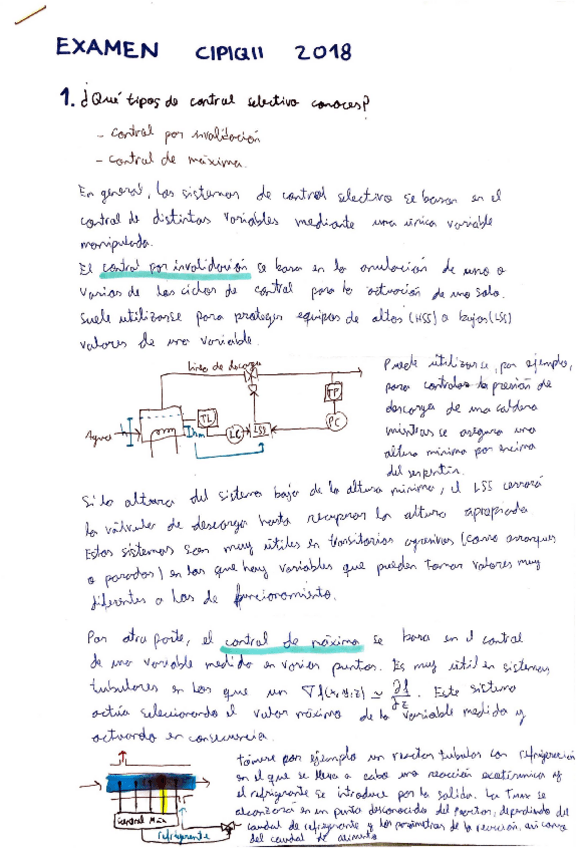 EXAMEN CIPIQII 2018
1. ¿Qué tipos de control selectivo conoces?
- control por invalidación
- control de máxima.
En general, los sistemas de control selectivo se basan en el
control de distintas variables mediante una única variable
manipulada.
El control por invalidación se basa en la anulación de uno o
varios de los ciclos de control para la actuación de uno solo.
Suele utilizarse para proteger equipos de altos (HSS) o bajos (LSS)
valores de una variable.
Línea de descarga
TP
TL
PC
LC
LSS
Agua
h
hm
Puede utilizarse, por ejemplo,
para controlar la presión de
descarga de una caldera
mientras se asegura una
altura mínima por encima
del serpentín.
Si la altura del sistema baja de la altura mínima, el LSS cerrará
la válvula de descarga hasta recuperar la altura apropiada.
Estos sistemas son muy útiles en transitorios agresivos (como arranques
o paradas) en los que hay variables que pueden tomar valores muy
diferentes a los de funcionamiento.
Por otra parte, el control de máxima se basa en el control
de una variable medida en varios puntos. Es muy útil en sistemas
tubulares en los que un ∇f(x,y,z) ≃ ∂f/∂z. Este sistema
actúa seleccionando el valor máximo de la variable medida y
actuando en consecuencia.
Control Máx
refrigerante
tómese por ejemplo un reactor tubular con refrigeración
en el que se lleva a cabo una reacción exotérmica y
el refrigerante se introduce por la salida. La Tmax se
alcanzará en un punto desconocido del reactor, dependiendo del
caudal de refrigerante y los parámetros de la reacción, así como
del caudal de alimento